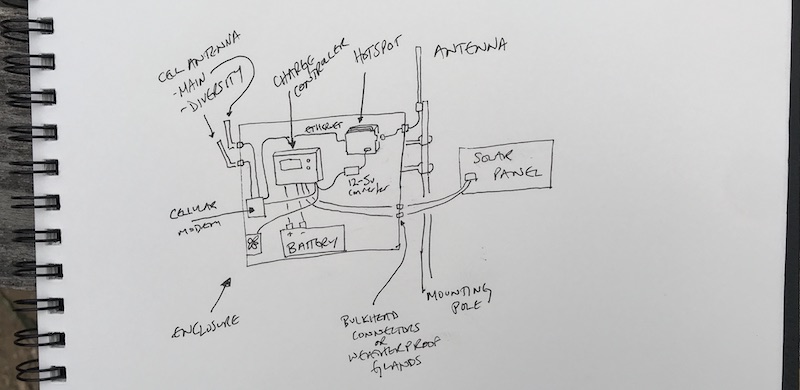 CELL ANTENNA
- MAIN
- DIVERSITY
CHARGE
CONTROLLER
HOTSPOT
ANTENNA
ETHERNET
SOLAR
PANEL
12-5V
CONVERTER
CELLULAR
MODEM
+ -
BATTERY
ENCLOSURE
BULKHEAD
CONNECTORS
OR
WEATHERPROOF
GLANDS
MOUNTING
POLE